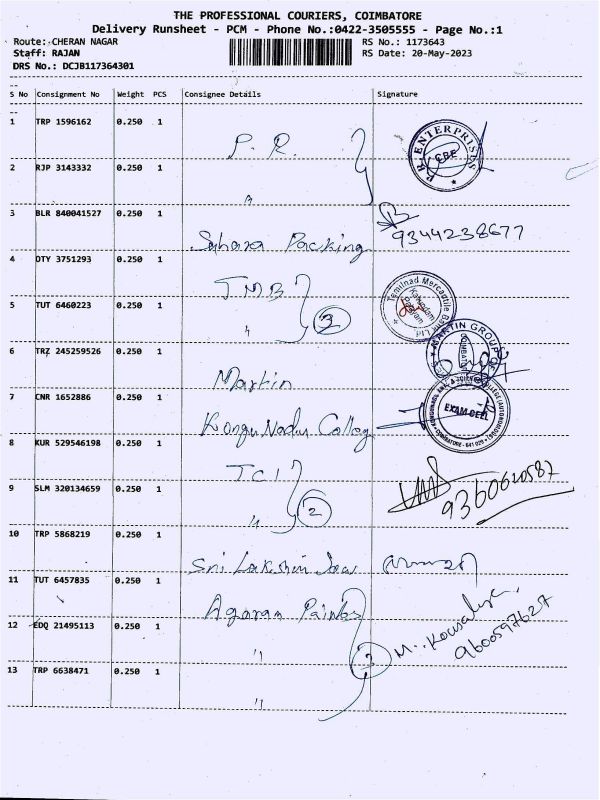 THE PROFESSIONAL COURIERS, COIMBATORE
Delivery Runsheet - PCM - Phone No.:0422-3505555 - Page No.:1
Route: CHERAN NAGAR RS No.: 1173643
Staff: RAJAN RS Date: 20-May-2023
DRS No.: DCJB117364301
S No Consignment No Weight PCS Consignee Details Signature
1 TRP 1596162 0.250 1 P. R. R.R. ENTERPRISES CBE
2 RJP 3143332 0.250 1 "
3 BLR 840041527 0.250 1 Sahara Packing 9344238677
4 OTY 3751293 0.250 1 TMB Tamilnad Mercantile Bank Ltd
5 TUT 6460223 0.250 1 " 2
6 TRZ 245259526 0.250 1 Martin MARTIN GROUP OF COIMBATORE
7 CNR 1652886 0.250 1 Kongu Nadu Colleg EXAM CELL COIMBATORE - 641 029
8 KUR 529546198 0.250 1 TCI
9 SLM 320134659 0.250 1 " 2 9360620587
10 TRP 5868219 0.250 1 Sri Lakshmi
11 TUT 6457835 0.250 1 Agaram Paints
12 EDQ 21495113 0.250 1 " 3 M. Kousalya 9600597627
13 TRP 6638471 0.250 1 "